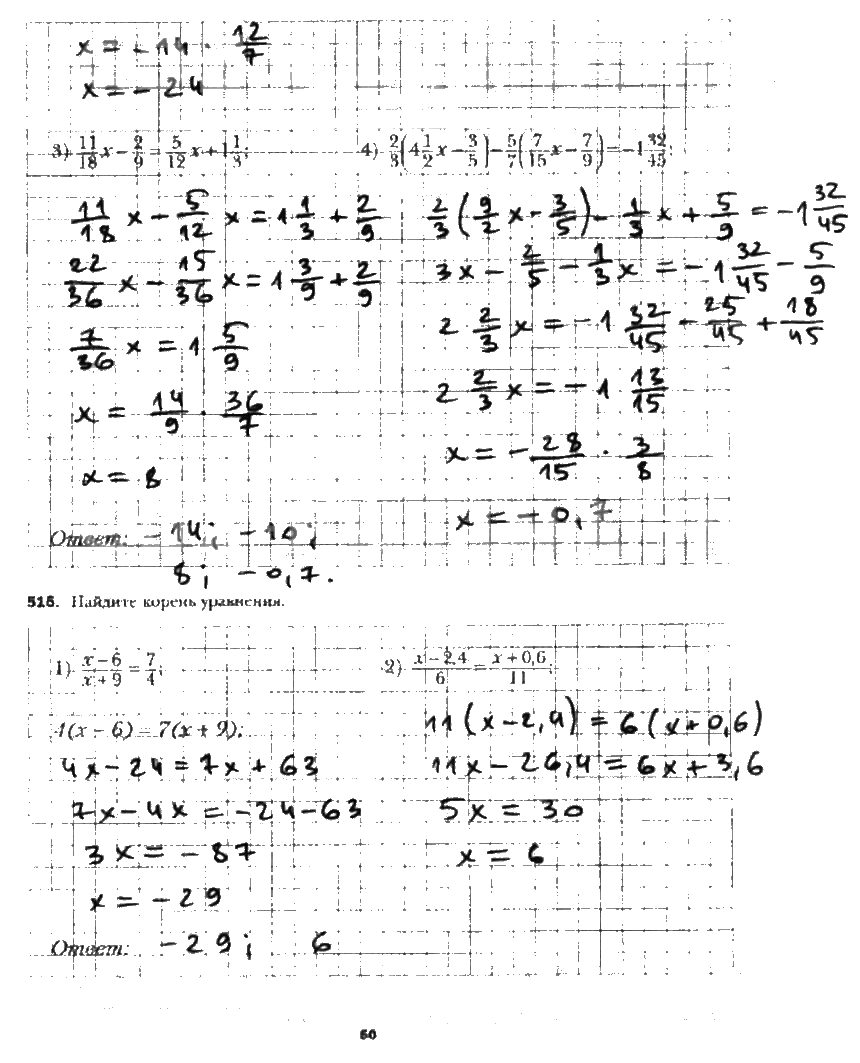 x = -14 · 12/7
x = -24
3) 11/18 x - 2/9 = 5/12 x + 1 1/3;
11/18 x - 5/12 x = 1 1/3 + 2/9
22/36 x - 15/36 x = 1 3/9 + 2/9
7/36 x = 1 5/9
x = 14/9 · 36/7
x = 8
4) 2/3 (4 1/2 x - 3/5) - 5/7 (7/15 x - 7/9) = -1 32/45;
2/3 (9/2 x - 3/5) - 1/3 x + 5/9 = -1 32/45
3x - 2/5 - 1/3 x = -1 32/45 - 5/9
2 2/3 x = -1 32/45 - 25/45 + 18/45
2 2/3 x = -1 13/15
x = -28/15 · 3/8
x = -0,7
Ответ: -14; -10;
8; -0,7.
515. Найдите корень уравнения.
1) x-6/x+9 = 7/4;
4(x - 6) = 7(x + 9);
4x - 24 = 7x + 63
7x - 4x = -24 - 63
3x = -87
x = -29
2) x-2,4/6 = x+0,6/11;
11(x - 2,4) = 6(x + 0,6)
11x - 26,4 = 6x + 3,6
5x = 30
x = 6
Ответ: -29; 6
50